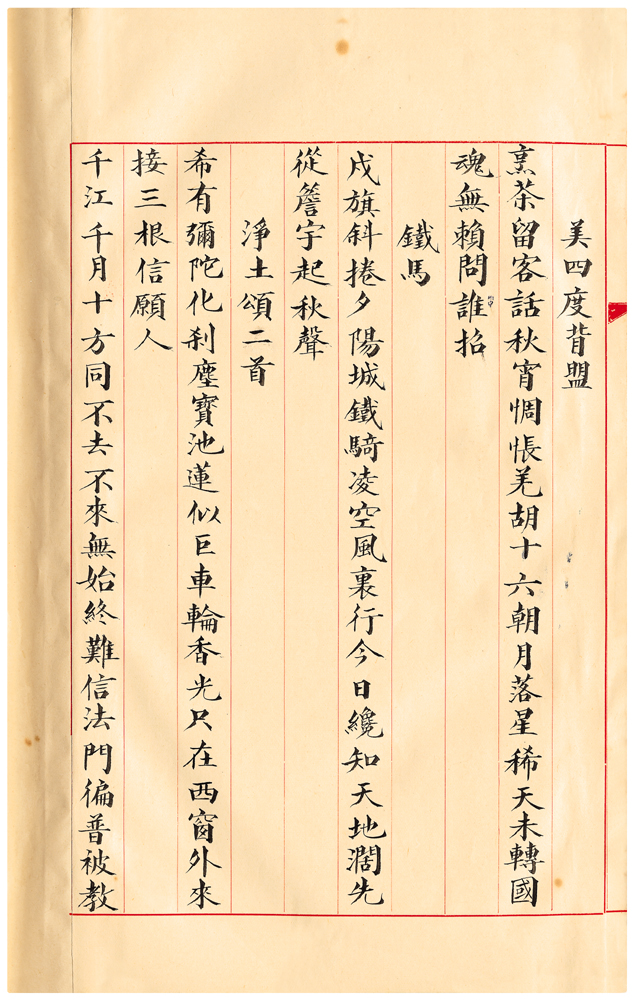 美四度背盟
烹茶留客話秋宵惆悵羌胡十六朝月落星稀天未轉國
魂無賴問誰招
鐵馬
戍旗斜捲夕陽城鐵騎凌空風裏行今日纔知天地濶先
從簷宇起秋聲
淨土頌二首
希有彌陀化刹塵寶池蓮似巨車輪香光只在西窗外來
接三根信願人
千江千月十方同不去不來無始終難信法門徧普被教